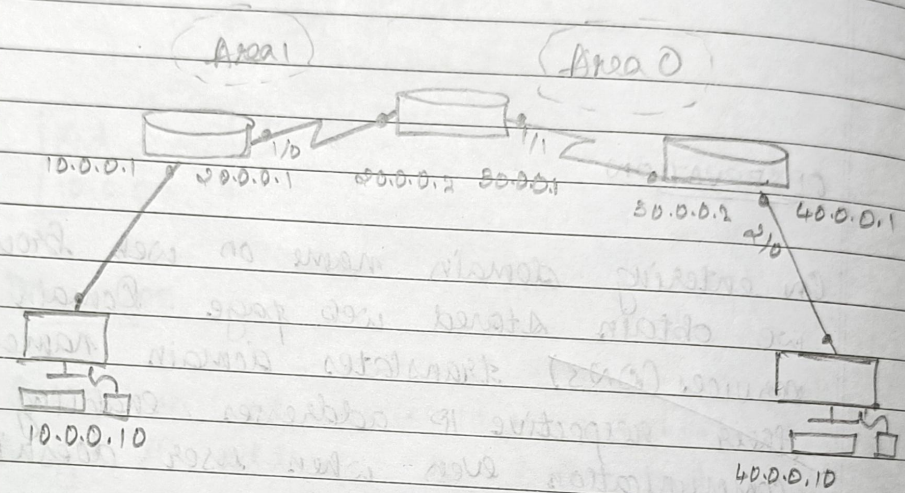 Area 1
Area 0
1/0
1/1
10.0.0.1
20.0.0.1
20.0.0.2
30.0.0.1
30.0.0.2
40.0.0.1
2/0
10.0.0.10
40.0.0.10